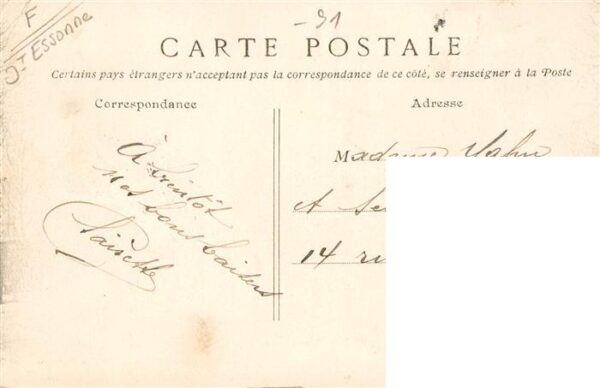 F
Essonne
-91
CARTE POSTALE
Certains pays étrangers n'acceptant pas la correspondance de ce côté, se renseigner à la Poste
Correspondance
Adresse
A bientôt
mes bons baisers
Madame
A
14 ru